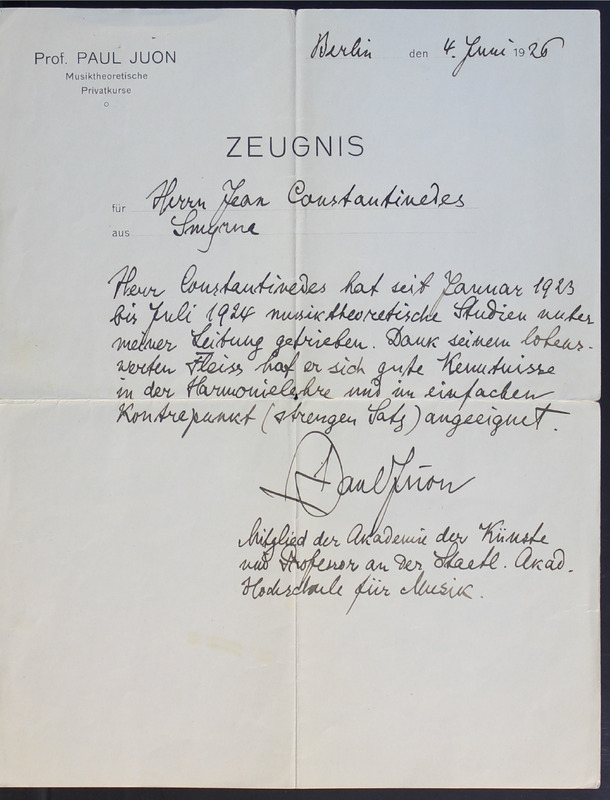 Prof. PAUL JUON
Musiktheoretische
Privatkurse
Berlin den 4. Juni 1926
ZEUGNIS
für Herrn Jean Constantinedes
aus Smyrna
Herr Constantinedes hat seit Januar 1923
bis Juli 1924 musiktheoretische Studien unter
meiner Leitung getrieben. Dank seinem lobens-
werten Fleiss hat er sich gute Kenntnisse
in der Harmonielehre und im einfachen
Kontrapunkt (strengen Satz) angeeignet.
Paul Juon
Mitglied der Akademie der Künste
und Professor an der Staatl. Akad.
Hochschule für Musik.